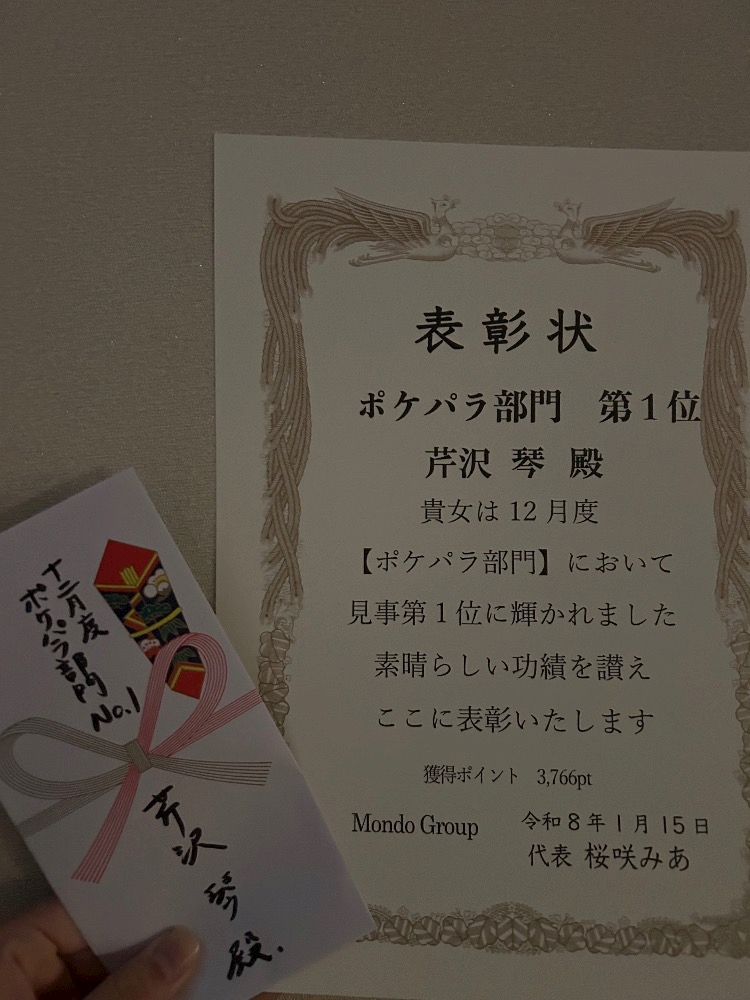 表彰状
ポケパラ部門 第1位
芹沢 琴 殿
貴女は12月度
【ポケパラ部門】において
見事第1位に輝かれました
素晴らしい功績を讃え
ここに表彰いたします
獲得ポイント 3,766pt
Mondo Group 令和8年1月15日
代表 桜咲みあ
十二月度
ポケパラ部門
No.1
芹沢 琴 殿.